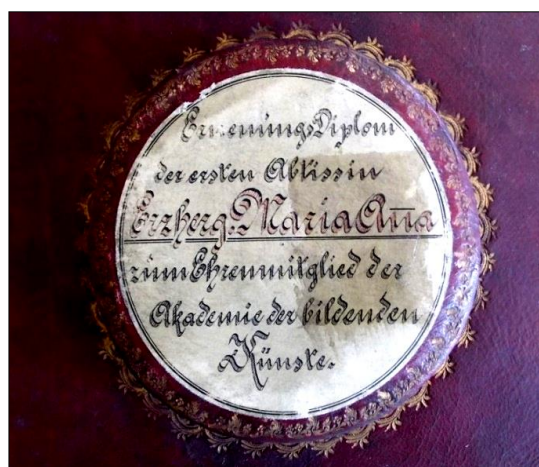 Ernenungs Diplom
der ersten Äbtissin
Erzherg. Maria Ana̅
zum Ehrenmitglied der
Akademie der bildenden
Künste.